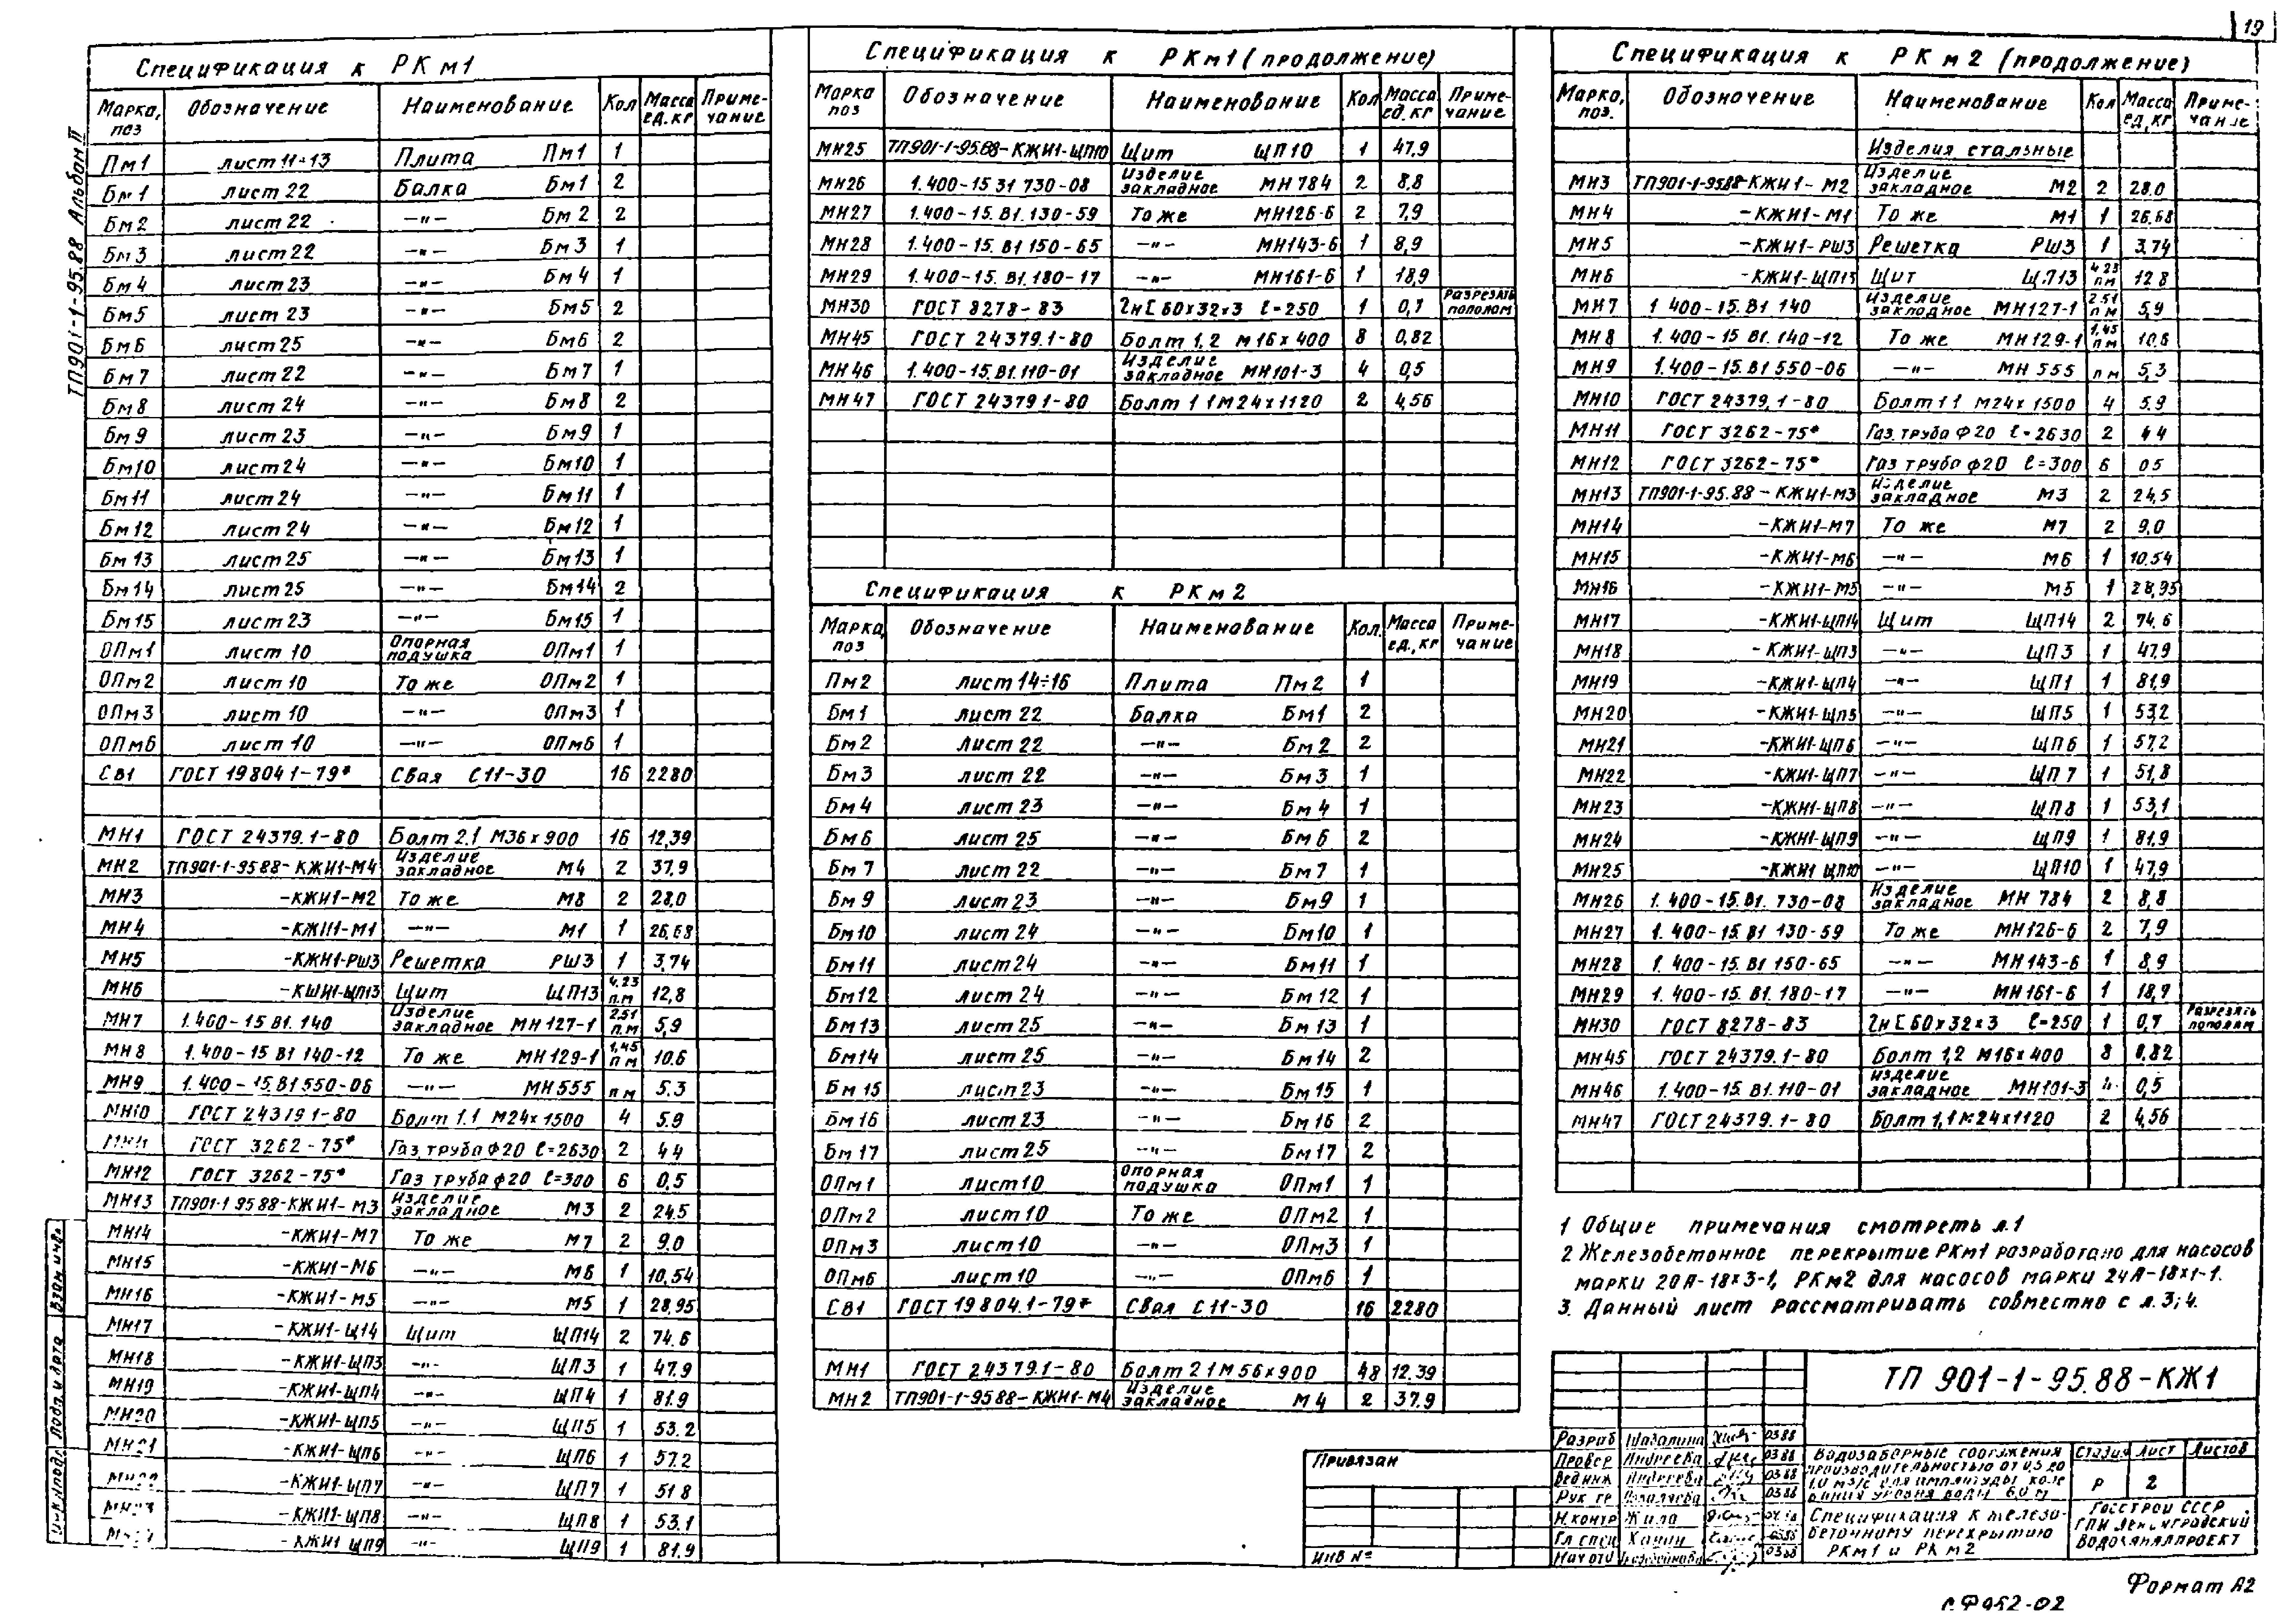 19
ТП901-1-95.88 Альбом II
Спецификация к РКм1
Марка, поз Обозначение Наименование Кол Масса ед.кг Примечание
Пм1 лист 11÷13 Плита Пм1 1
Бм1 лист 22 Балка Бм1 2
Бм2 лист 22 —"— Бм2 2
Бм3 лист 22 —"— Бм3 1
Бм4 лист 23 —"— Бм4 1
Бм5 лист 23 —"— Бм5 2
Бм6 лист 25 —"— Бм6 2
Бм7 лист 22 —"— Бм7 1
Бм8 лист 24 —"— Бм8 2
Бм9 лист 23 —"— Бм9 1
Бм10 лист 24 —"— Бм10 1
Бм11 лист 24 —"— Бм11 1
Бм12 лист 24 —"— Бм12 1
Бм13 лист 25 —"— Бм13 1
Бм14 лист 25 —"— Бм14 2
Бм15 лист 23 —"— Бм15 1
ОПм1 лист 10 Опорная подушка ОПм1 1
ОПм2 лист 10 То же ОПм2 1
ОПм3 лист 10 —"— ОПм3 1
ОПм6 лист 10 —"— ОПм6 1
Св1 ГОСТ 19804 1-79* Свая С11-30 16 2280
МН1 ГОСТ 24379.1-80 Болт 2.1 М36х900 16 12,39
МН2 ТП901-1-95 88-КЖИ1-М4 Изделие закладное М4 2 37,9
МН3 -КЖИ1-М2 То же М8 2 28,0
МН4 -КЖИ1-М1 —"— М1 1 26,68
МН5 -КЖИ1-РШ3 Решетка РШ3 1 3,74
МН6 -КШИ1-ЩП13 Щит ЩП13 4,23 п.м 12,8
МН7 1.400-15 В1. 140 Изделие закладное МН127-1 2.51 п.м 5,9
МН8 1.400-15 В1 140-12 То же МН129-1 1,45 п м 10.6
МН9 1.400-15.В1 550-06 —"— МН555 п м 5.3
МН10 ГОСТ 24379 1-80 Болт 1.1 М24х1500 4 5.9
МН11 ГОСТ 3262-75* Газ. труба Ф20 ℓ=2630 2 4 4
МН12 ГОСТ 3262-75* Газ труба ф20 ℓ=300 6 0,5
МН13 ТП901-1 95 88-КЖИ1-М3 Изделие закладное М3 2 24.5
МН14 -КЖИ1-М7 То же М7 2 9.0
МН15 -КЖИ1-М6 —"— М6 1 10,54
МН16 -КЖИ1-М5 —"— М5 1 28,95
МН17 -КЖИ1-Щ14 Щит ЩП14 2 74.6
МН18 -КЖИ1-ЩП3 —"— ЩП3 1 47.9
МН19 -КЖИ1-ЩП4 —"— ЩП4 1 81.9
МН20 -КЖИ1-ЩП5 —"— ЩП5 1 53.2
МН21 -КЖИ1-ЩП6 —"— ЩП6 1 57.2
-КЖИ1-ЩП7 —"— ЩП7 1 51 8
-КЖИ1-ЩП8 —"— ЩП8 1 53.1
-КЖИ1 ЩП9 —"— ЩП9 1 81.9
Спецификация к РКм1 (продолжение)
Марка поз Обозначение Наименование Кол Масса ед. кг Примечание
МН25 ТП901-1-95.88-КЖИ1-ЩП10 Щит ЩП10 1 47,9
МН26 1.400-15 31 730-08 Изделие закладное МН784 2 8,8
МН27 1.400-15. В1.130-59 То же МН126-6 2 7,9
МН28 1.400-15. В1 150-65 —"— МН143-6 1 8,9
МН29 1.400-15. В1.180-17 —"— МН161-6 1 18,9
МН30 ГОСТ 8278-83 Гн[ 60х32х3 ℓ=250 1 0,7 Разрезать пополам
МН45 ГОСТ 24379.1-80 Болт 1,2 М16х400 8 0,82
МН46 1.400-15.В1.110-01 Изделие закладное МН101-3 4 0,5
МН47 ГОСТ 24379 1-80 Болт 1 1М24х1120 2 4,56
Спецификация к РКм2
Марка, поз Обозначение Наименование Кол. Масса ед., кг Примечание
Пм2 лист 14÷16 Плита Пм2 1
Бм1 лист 22 Балка Бм1 2
Бм2 лист 22 —"— Бм2 2
Бм3 лист 22 —"— Бм3 1
Бм4 лист 23 —"— Бм4 1
Бм6 лист 25 —"— Бм6 2
Бм7 лист 22 —"— Бм7 1
Бм9 лист 23 —"— Бм9 1
Бм10 лист 24 —"— Бм10 1
Бм11 лист 24 —"— Бм11 1
Бм12 лист 24 —"— Бм12 1
Бм13 лист 25 —"— Бм13 1
Бм14 лист 25 —"— Бм14 2
Бм15 лист 23 —"— Бм15 1
Бм16 лист 23 —"— Бм16 2
Бм17 лист 25 —"— Бм17 2
ОПм1 лист 10 Опорная подушка ОПм1 1
ОПм2 лист 10 То же ОПм2 1
ОПм3 лист 10 —"— ОПм3 1
ОПм6 лист 10 —"— ОПм6 1
Св1 ГОСТ 19 804.1-79* Свая С11-30 16 2280
МН1 ГОСТ 24379.1-80 Болт 2 1 М56х900 48 12.39
МН2 ТП901-1-95 88-КЖИ1-М4 Изделие закладное М4 2 37.9
Спецификация к РКм2 (продолжение)
Марка, поз. Обозначение Наименование Кол Масса ед, кг Примечание
Изделия стальные
МН3 ТП901-1-95.88-КЖИ1-М2 Изделие закладное М2 2 28.0
МН4 -КЖИ1-М1 То же М1 1 26,68
МН5 -КЖИ1-РШ3 Решетка РШ3 1 3,74
МН6 -КЖИ1-ЩП13 Щит ЩП13 4 23 п м 12 8
МН7 1 400-15. В1 140 Изделие закладное МН127-1 2 51 п м 5,9
МН8 1. 400-15 В1. 140-12 То же МН129-1 1,45 п м 10,6
МН9 1.400-15.В1 550-06 —"— МН 555 п м 5,3
МН10 ГОСТ 24379, 1-80 Болт 1 1 М24х 1500 4 5.9
МН11 ГОСТ 3262-75* Газ. труба Ф20 ℓ=2630 2 4 4
МН12 ГОСТ 3262-75* Газ труба ф20 ℓ=300 6 0 5
МН13 ТП901-1-95.88-КЖИ1-М3 Изделие закладное М3 2 24,5
МН14 -КЖИ1-М7 То же М7 2 9,0
МН15 -КЖИ1-М6 —"— М6 1 10.54
МН16 -КЖИ1-М5 —"— М5 1 28,95
МН17 -КЖИ1-ЩП14 Щит ЩП14 2 74,6
МН18 -КЖИ1-ЩП3 —"— ЩП3 1 47,9
МН19 -КЖИ1-ЩП4 —"— ЩП1 1 81,9
МН20 -КЖИ1-ЩП5 —"— ЩП5 1 53,2
МН21 -КЖИ1-ЩП6 —"— ЩП6 1 57,2
МН22 -КЖИ1-ЩП7 —"— ЩП7 1 51,8
МН23 -КЖИ1-ЩП8 —"— ЩП8 1 53,1
МН24 -КЖИ1-ЩП9 —"— ЩП9 1 81,9
МН25 -КЖИ1 ЩП10 —"— ЩП10 1 47,9
МН26 1. 400-15.В1. 730-08 Изделие закладное МН 784 2 8,8
МН27 1. 400-15. В1 130-59 То же МН126-6 2 7,9
МН28 1. 400-15. В1 150-65 —"— МН143-6 1 8,9
МН29 1. 400-15. В1.180-17 —"— МН161-6 1 18,9
МН30 ГОСТ 8278-83 Гн[ 60х32х3 ℓ=250 1 0,7 Разрезать пополам
МН45 ГОСТ 24379.1-80 Болт 1,2 М16х400 8 0,82
МН46 1.400-15. В1.110-01 Изделие закладное МН101-3 4 0,5
МН47 ГОСТ 24379. 1-80 Болт 1,1 М24х1120 2 4,56
1 Общие примечания смотреть л.1
2 Железобетонное перекрытие РКм1 разработано для насосов
марки 20А-18х3-1, РКм2 для насосов марки 24А-18х1-1.
3. Данный лист рассматривать совместно с л. 3; 4.
ТП 901-1-95.88-КЖ1
Разраб 03 88
Провер Андреева 03 88
Вед инж Андреева 03 88
Рук гр 03 88
Н.контр Жила
Гл спец Ханин 03 88
Нач отд 03 88
Водозаборные сооружения производительностью от 0,5 до 1,0 м3/с для амплитуды колебания уровня воды 6,0 м
Стадия Лист Листов
Р 2
Спецификация к железобетонному перекрытию РКм1 и РКм2
Госстрой СССР ГПИ Ленинградский Водоканалпроект
Привязан
Инв №
Взам инв.
Подп. и дата
Инв.№подл
Формат А2
СФ952-02